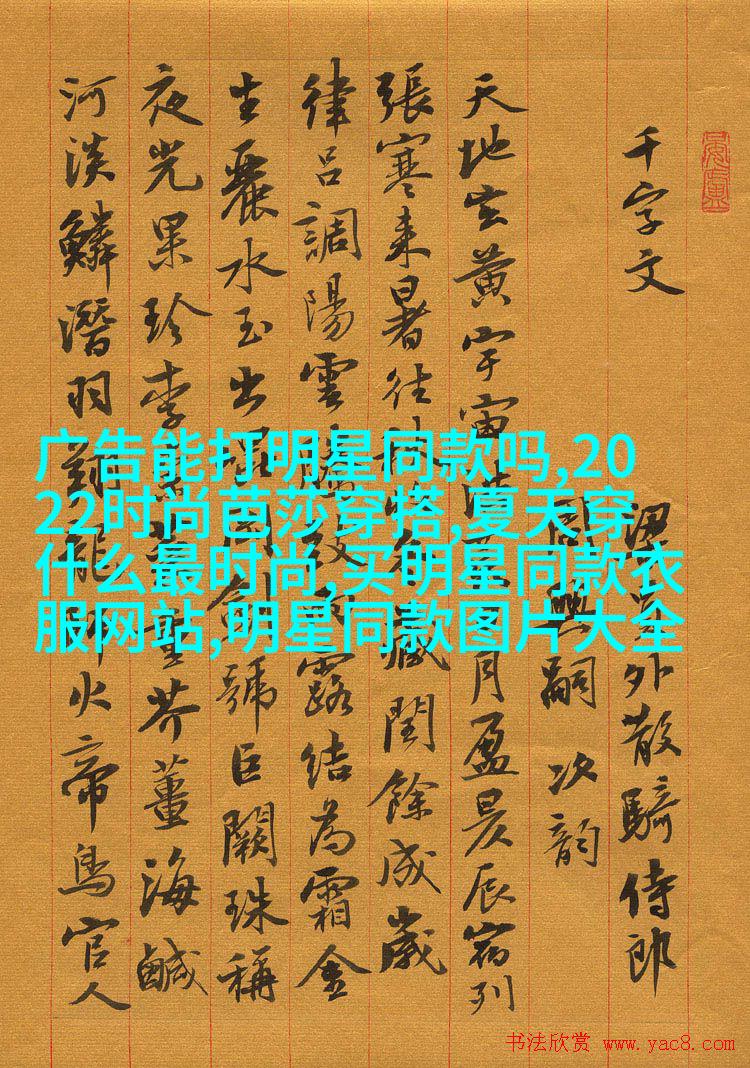 千字文
梁員外散騎侍郎
周興嗣次韵
天地玄黄宇宙洪荒日月盈昃辰宿列
張寒来暑往秋收冬藏閏餘成歲
律吕調陽雲騰致雨露結為霜金
生麗水玉出崑岡劍號巨闕珠稱
夜光果珍李柰菜重芥薑海鹹
河淡鱗潛羽翔龍師火帝鳥官人
广告能打明星同款吗,20
22时尚芭莎穿搭,夏天穿
什么最时尚,买明星同款衣
服网站,明星同款图片大全
书法欣赏 www.yac8.com